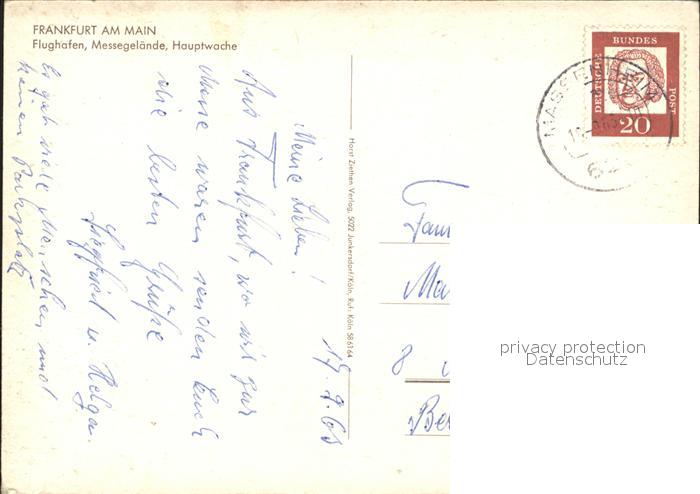 FRANKFURT AM MAIN
Flughafen, Messegelände, Hauptwache
DEUTSCHE BUNDES POST
20
Horst Ziethen Verlag, 5022 Junkersdorf/Köln, Ruf: Köln 58 61 64
Meine Lieben!
Aus Frankfurt, wo wir zur
Messe waren senden Euch
die besten Grüße
Siegfried u. Helga.
Es gab viele Menschen und
keinen Parkplatz
Fam
Ma
8
Ber
privacy protection
Datenschutz